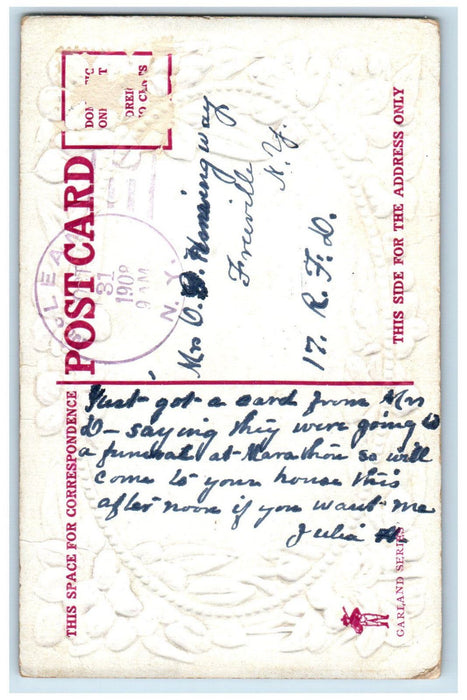 POST CARD
THIS SPACE FOR CORRESPONDENCE
THIS SIDE FOR THE ADDRESS ONLY
31
1908
9 AM
N. Y.
Mrs O. D. Hemingway
Freeville
N. Y.
17. R. F. D.
Just got a card from Mrs
D- saying they were going to
a funeral at Marathon so will
come to your house this
after noon if you want me
Julia H.
GARLAND SERIES